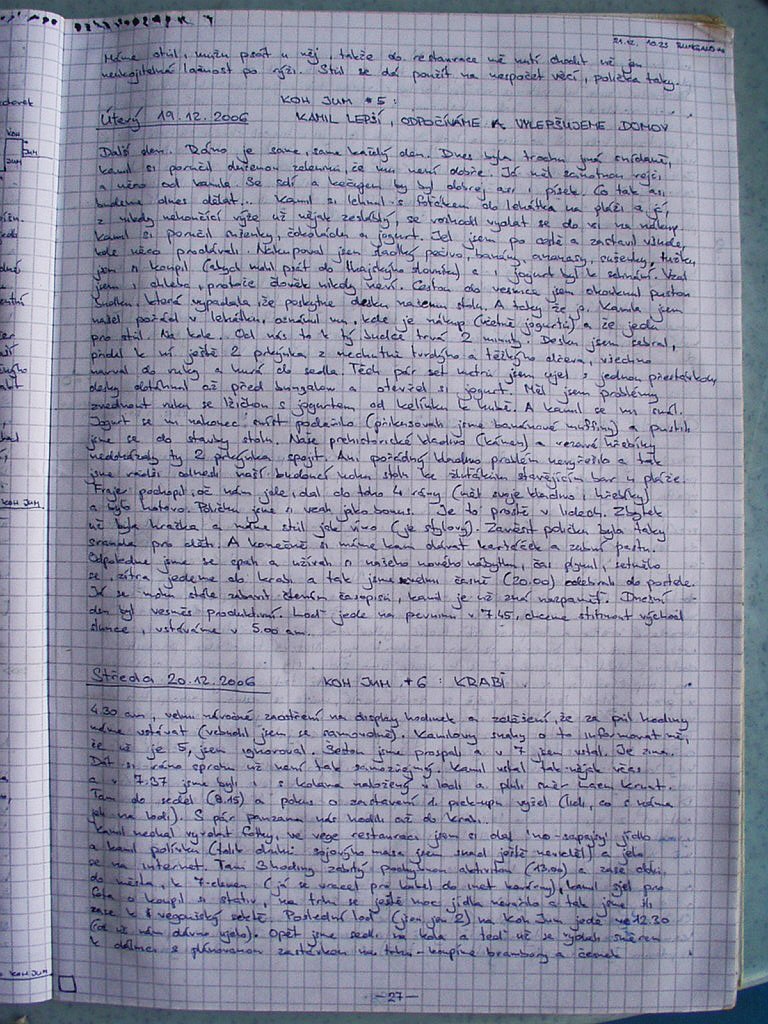 21.12. 10:23 BUNGALOW
Máme stůl, můžu psát u něj, takže do restaurace mě nutí chodit už jen
neukojitelná lačnost po rýži. Stůl se dá použít na nespočet věcí, polička taky.
KOH JUM #5:
Úterý 19.12.2006 KAMIL LEPŠÍ, ODPOČÍVÁME A VYLEPŠUJEME DOMOV
Další den. Ráno je same, same každý den. Dnes byla trochu jiná snídaně,
kamil si poručil dušenou zeleninu, že mu není dobře. Já měl samotnou rejži
a něco od kamila. Se solí a kečupem by byl dobrej asi i písek. Co tak asi
budeme dnes dělat... Kamil si lehnul s foťákem do lehátka na pláži a já,
z nikdy nekončící rýže už nějak zesláblý, se rozhodl vydat se do vsi na nákup.
Kamil si poručil sušenky, čokoládu a jogurt. Jel jsem po cestě a zastavil všude,
kde něco prodávali. Nakupoval jsem sladký pečivo, banány, ananasy, sušenky, tužku
jsem si koupil (abych mohl psát do thajskýho slovníku) a i jogurt byl k sehnání. Vzal
jsem i chleba, protože člověk nikdy neví. Cestou do vesnice jsem okouknul pustou
, která vypadala, že poskytne desku našemu stolu. A taky že jo. Kamila jsem
našel pořád v lehátku, oznámil mu, kde je nákup (včetně jogurtů) a že jedu
pro stůl. Na kole. Od nás to k tý budce trvá 2 minuty. Desku jsem sebral,
přidal k ní ještě 2 prkýnka z nechutně tvrdýho a těžkýho dřeva, všechno
narval do ruky a hurá do sedla. Těch pár set metrů jsem ujel s jednou přestávkou,
desky dotáhnul až před bungalow a otevřel si jogurt. Měl jsem problémy
zvednout ruku se lžičkou s jogurtem od kelímku k hubě. A kamil se mi smál.
Jogurt se mi nakonec sníst podařilo (přikusovali jsme banánové muffiny) a pustili
jsme se do stavby stolu. Naše prehistorické kladivo (kámen) a rezavé hřebíky
nedokázaly ty 2 prkýnka spojit. Ani pořádný kladivo problém nevyřešilo a tak
jsme radši odnesli naší budoucí nohu stolu ke žluťákům stavějícím bar u pláže.
Frajer pochopil, oč nám jde, dal do toho 4 rány (měl svoje kladivo i hřebíky)
a bylo hotovo. Poličku jsme si vzali jako bonus. Je to prostě v lidech. Zbytek
už byla hračka a máme stůl jak víno (je stylový). Zavěsit poličku byla taky
sranda pro děti. A konečně si máme kam dávat kartáček a zubní pastu.
Odpoledne jsme se cpali a užívali si našeho nového nábytku, čas plynul, setmělo
se, zítra jedeme do krabi a tak jsme velmi časně (20.00) odebrali do postele.
Já se mohu stále zabavit čtením časopisů, kamil je už zná nazpaměť. Dnešní
den byl vesměs produktivní. Loď jede na pevninu v 7.45, chceme stihnout východ
slunce, vstáváme v 5.00 am.
Středa 20.12.2006 KOH JUM #6: KRABI
4.30 am, velmi náročné zaostření na display hodinek a zděšení, že za půl hodiny
máme vstávat (vzbudil jsem se samovolně). Kamilovy snahy o to informovat mě,
že už je 5, jsem ignoroval. Sedum jsme prospali a v 7 jsem vstal. Je zima.
Dát si ráno sprchu už není tak samozřejmý. Kamil vstal tak nějak včas
a v 7.37 jsme byli i s kolama naložený v lodi a pluli směr Laem Kruat.
Tam do sedel (8.15) a pokus o zastavení 1. pick-upu vyšel (lidi, co s náma
jeli na lodi). S pár pauzama nás hodili až do krabi.
Kamil nechal vyvolat fotky, ve vege restauraci jsem si dal "no-sapajsy" jídlo
a kamil polívku (tolik druhů sojovýho masa jsem snad ještě neviděl) a jelo
se na internet. Tam 3 hodiny zabitý pochybnou aktivitou (13.00) a zase oběd,
do města, k 7-eleven (já se vracel pro kabel do inet kavárny), kamil zjel pro
fota a koupil si stativ, na trhu se ještě moc jídla nevařilo a tak jsme šli
zase k veganský sektě. Poslední loď (jsou jen 2) na Koh Jum jede ve 12.30
(ta už nám dávno ujela). Opět jsme sedli na kola a teď už se vydali směrem
k dálnici s plánovanou zastávkou na trhu - koupíme brambory a česnek
- 27 -
KOH JUM
KOH JUM